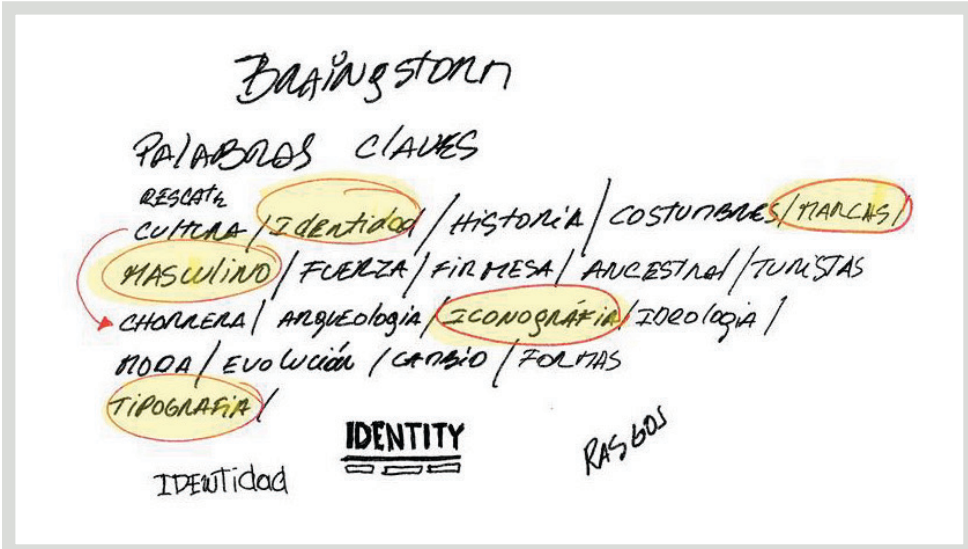 BRAiNgstorm
PALABRAS CLAVES
RESCATE
CULTURA / IdENtidad / HiStoRiA / COSTUMBRES / MARCAS /
MASCULINO / FUERZA / FiRMESA / ANCESTRAl / TURiSTAS
CHORRERA / ARQUEOlogiA / ICONOgRÁFiA / IDEOlogiA /
MODA / EVOlUCióN / CAMBiO / FORMAS
TiPOGRAFiA /
IDENTITY
RASGOS
IDENTidad